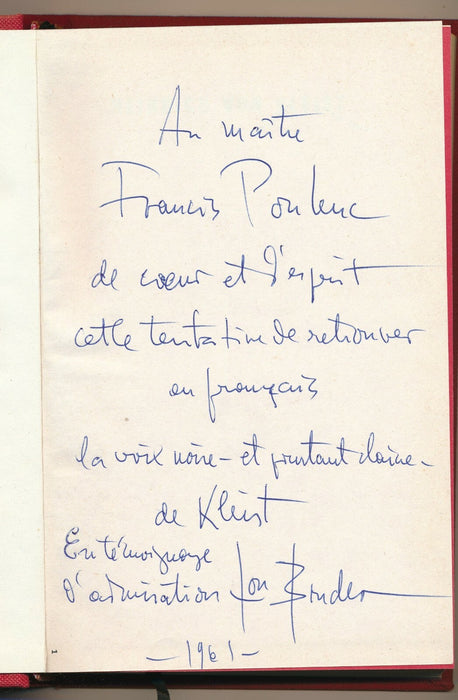 Au maître
Francis Poulenc
de cœur et d'esprit
cette tentative de retrouver
en français
la voix noire – et pourtant claire –
de Kleist
En témoignage
d'admiration
– 1961 –
1